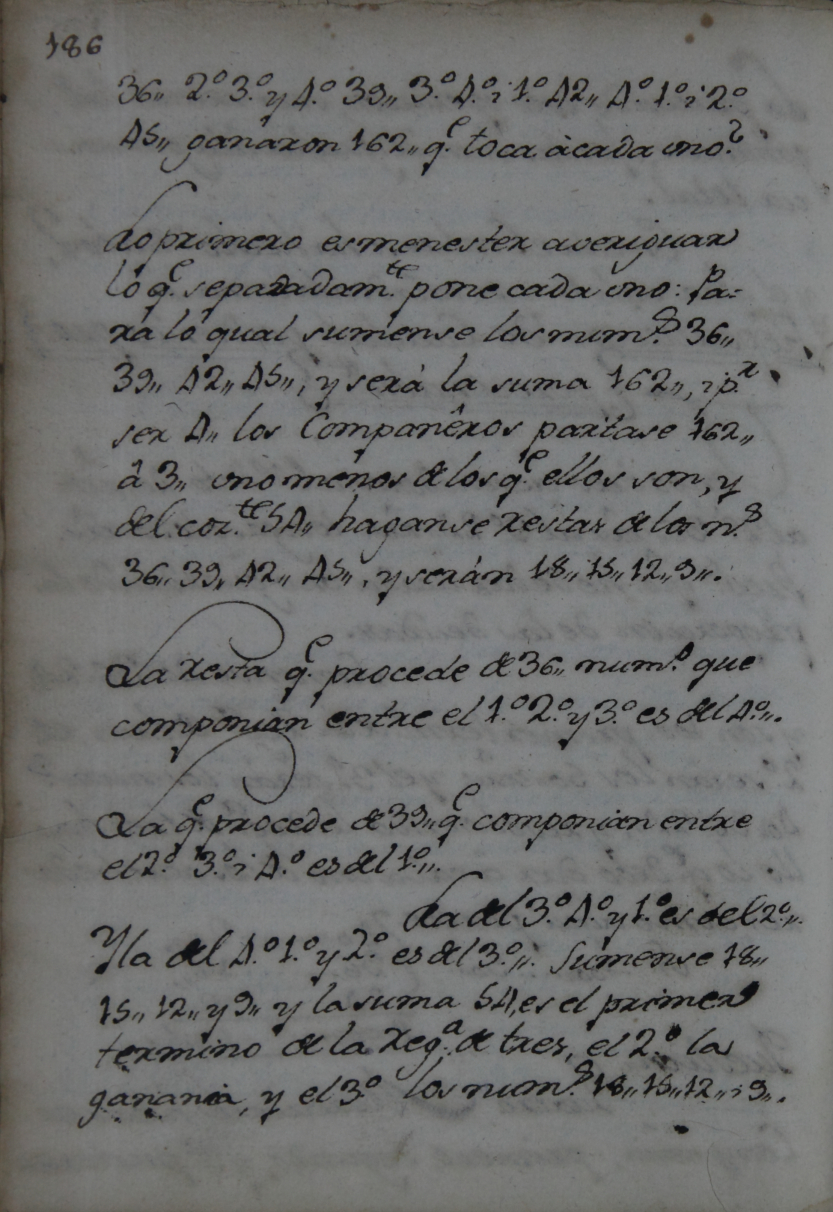 186
36,, 2.º 3.º y 4.º 39,, 3.º 4.º i 1.º 42,, 4.º 1.º i 2.º
45,, ganaron 162,, q.e toca à cada uno?
Lo primero es menester averiguar
lo q.e separadam.te pone cada uno: Pa-
ra lo qual sumense los num.s 36,,
39,, 42,, 45,,, y será la suma 162,,, i p.r
ser 4,, los Compañeros partase 162,,
â 3,, uno menos de los q.e ellos son, y
del coz.te 54,, haganse restas de los n.s
36,, 39,, 42,, 45,,, y serán 18,, 15,, 12,, 9,,.
La resta q.e procede de 36,, num.o que
componian entre el 1.º 2.º y 3.º es del 4.º,,.
La q.e procede de 39,, q.e componian entre
el 2.º 3.º i 4.º es del 1.º,,.
La del 3.º 4.º y 1.º es del 2.º,,.
Y la del 4.º 1.º y 2.º es del 3.º,,. Sumense 18,,
15,, 12,, y 9,, y la suma 54, es el primer
termino de la reg.a de tres, el 2.º la
ganania, y el 3.º los num.s 18,, 15,, 12,, i 9,,.